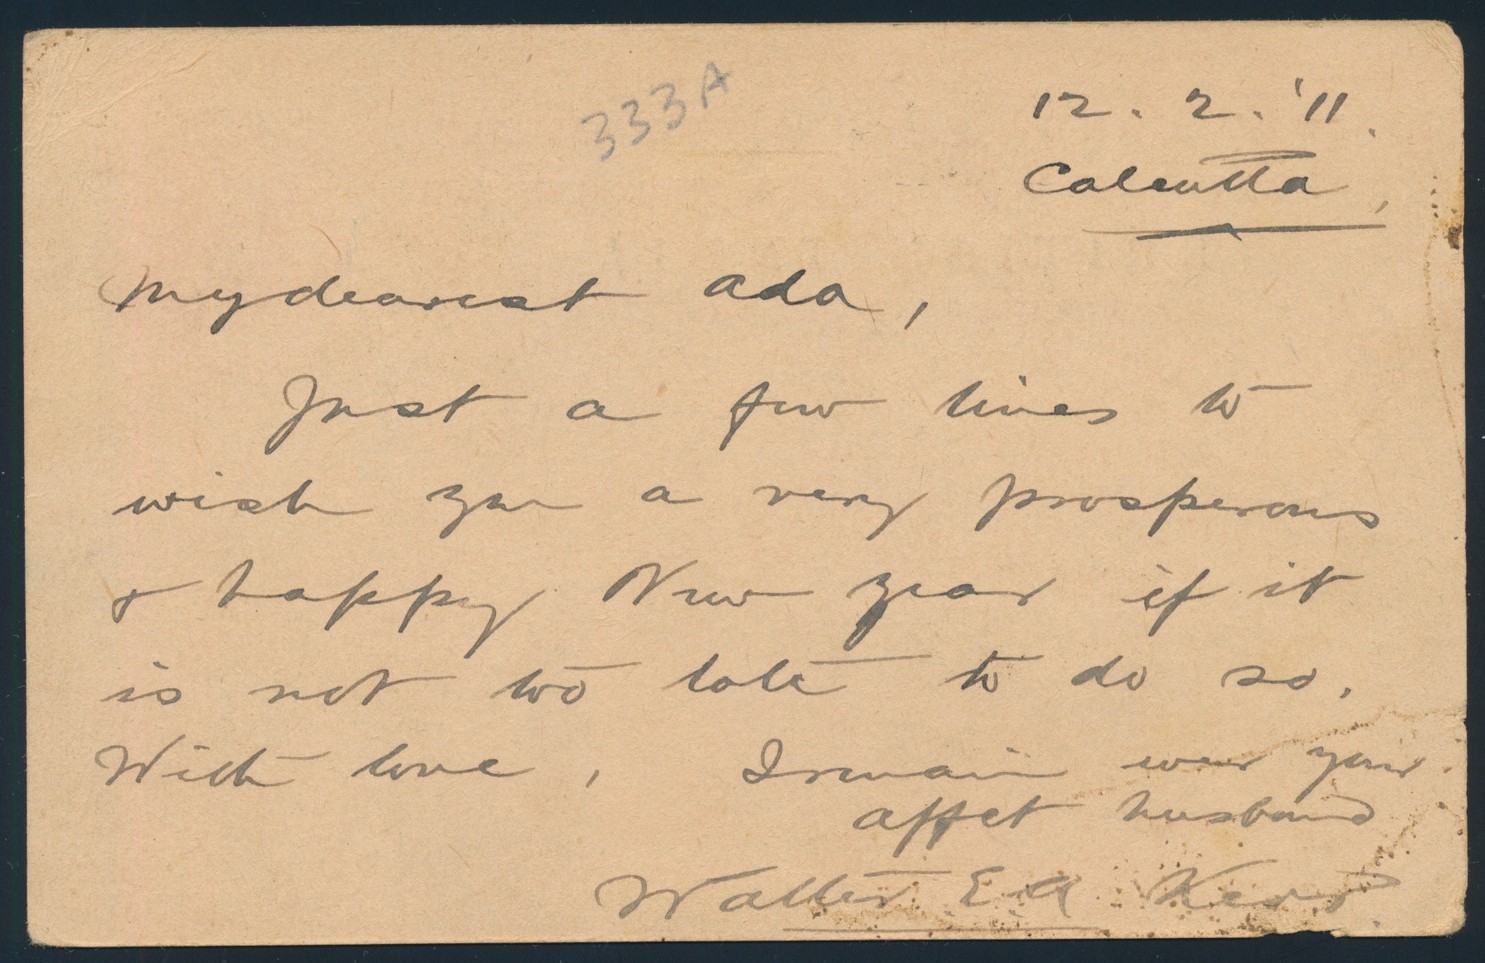 333A
12. 2. '11.
Calcutta,
My dearest Ada,
Just a few lines to
wish you a very prosperous
& happy New Year if it
is not too late to do so.
With love, I remain ever your
affct husband
Walter E A Kerr.